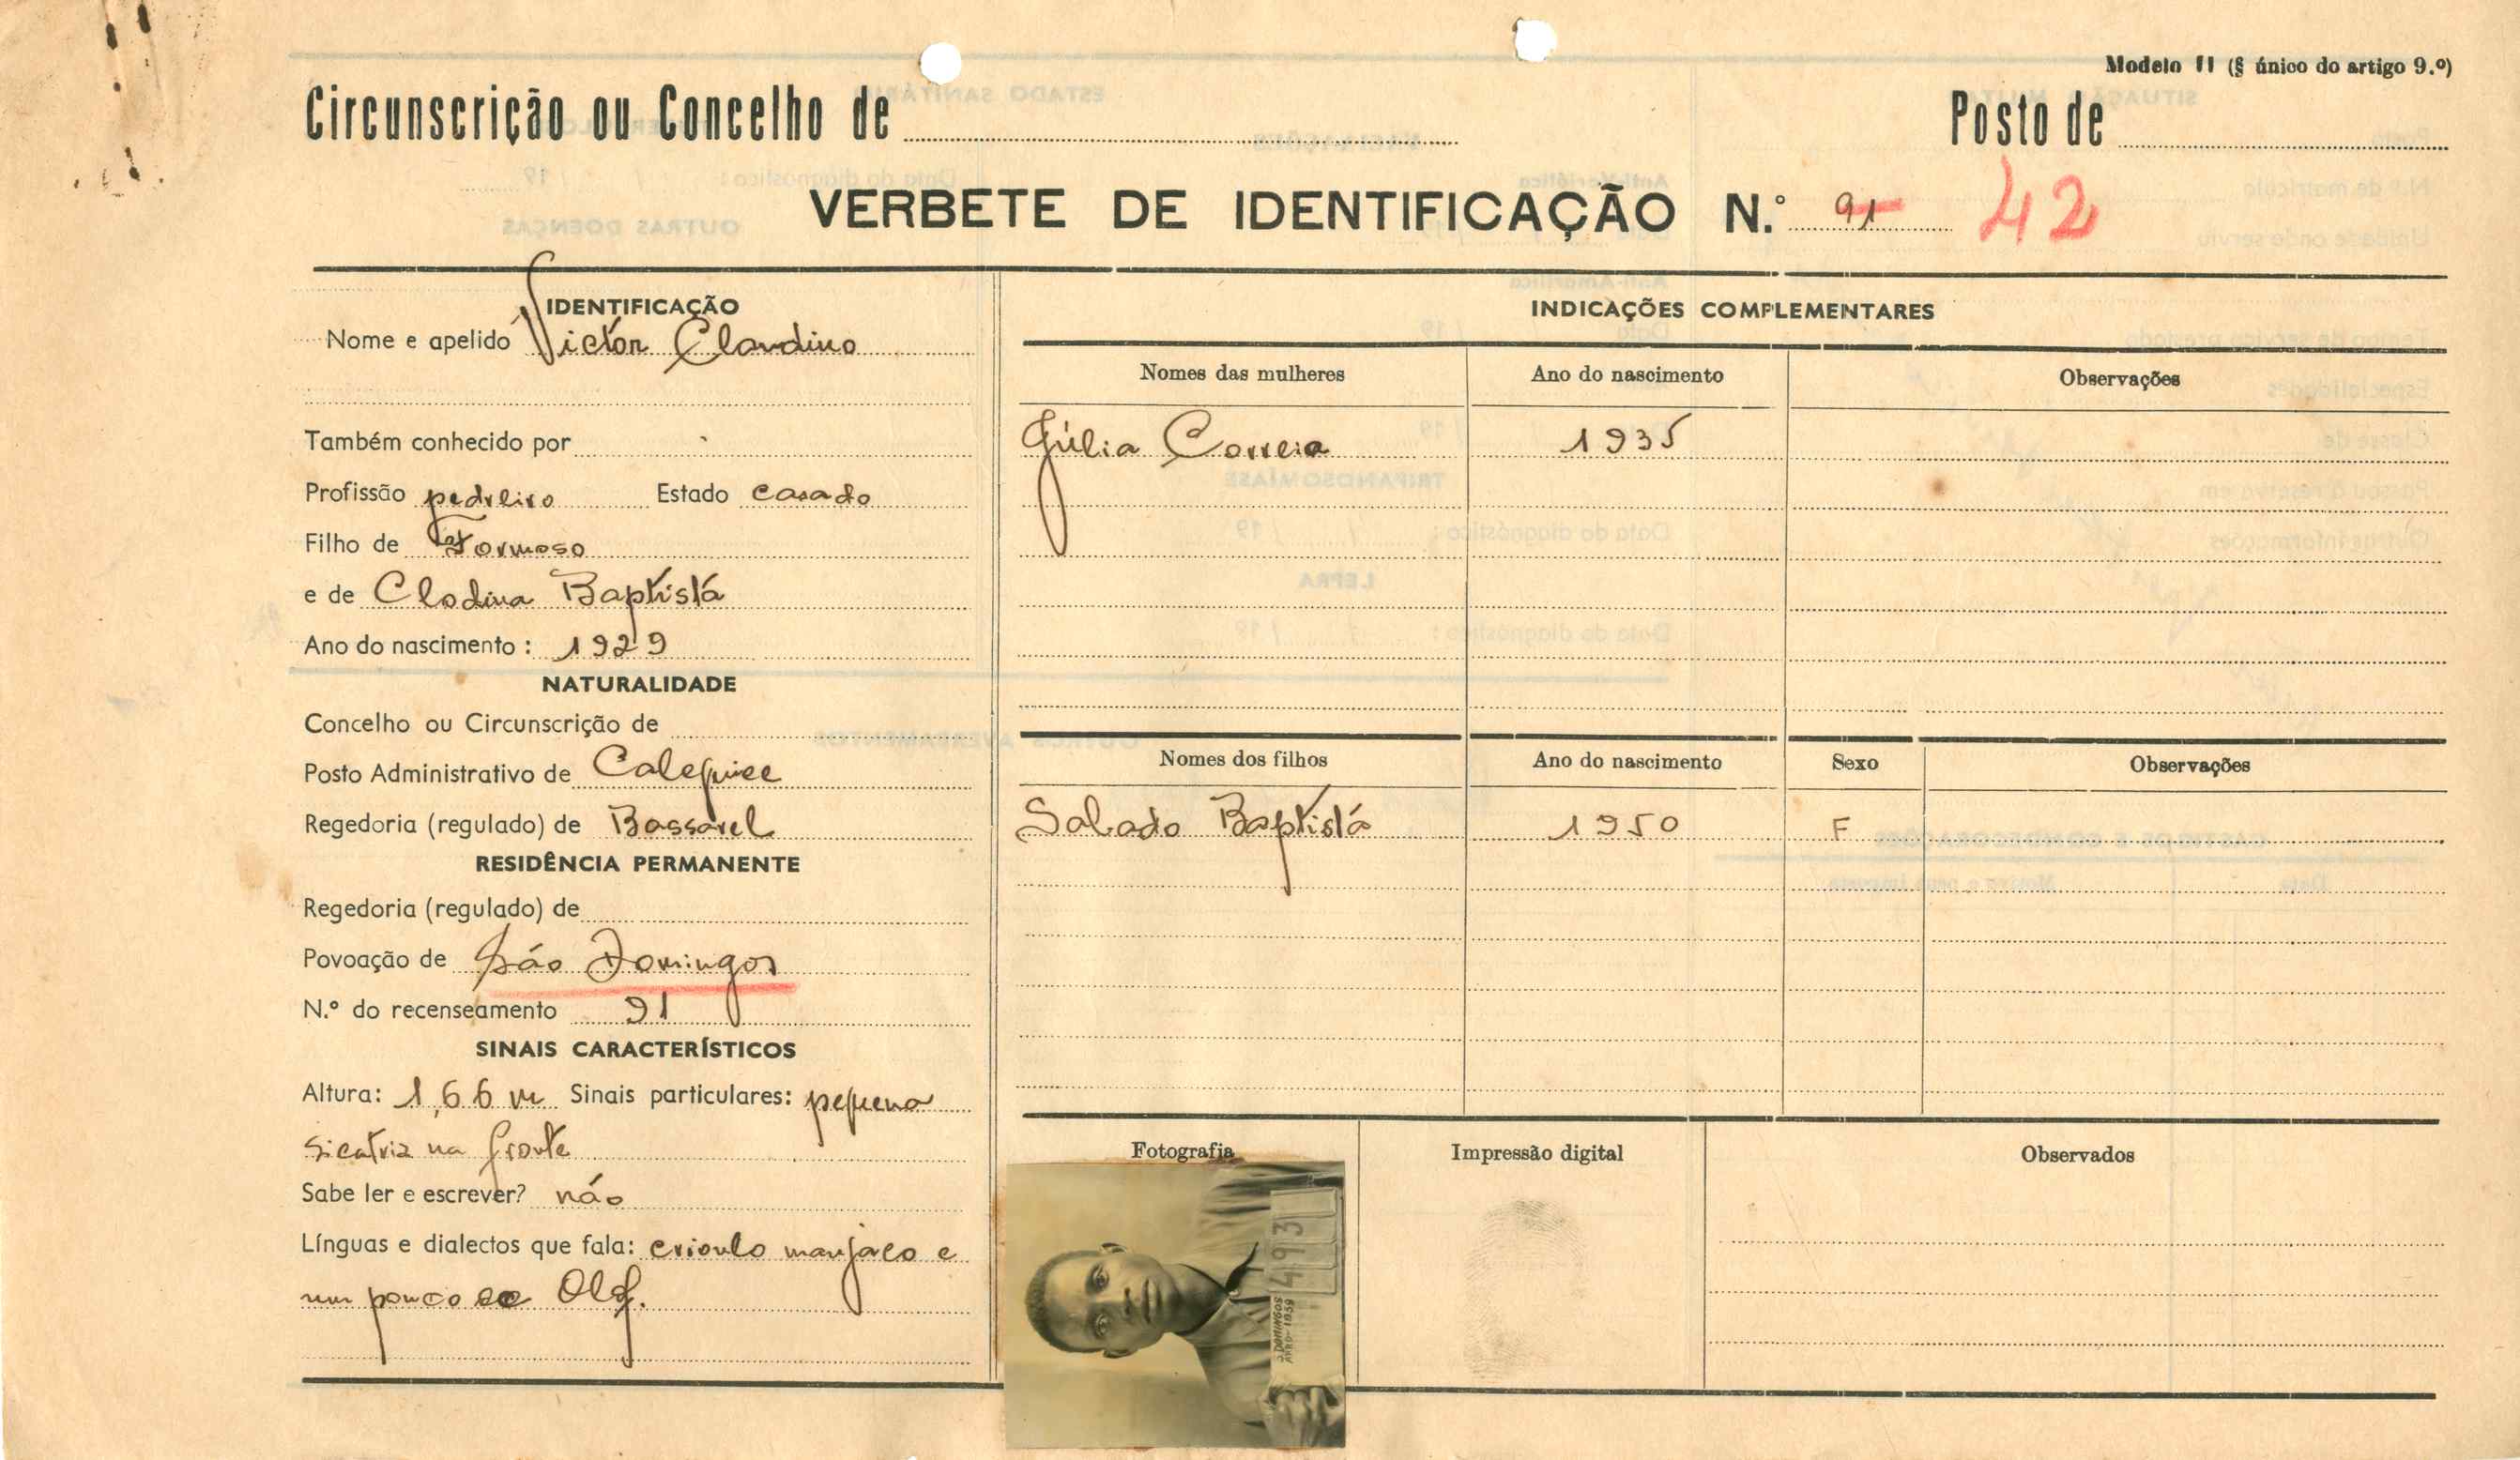 Modelo II (§ único do artigo 9.º)
Circunscrição ou Concelho de
Posto de
VERBETE DE IDENTIFICAÇÃO N.º 91 42
IDENTIFICAÇÃO
Nome e apelido Victór Claudino
Também conhecido por
Profissão pedreiro Estado casado
Filho de Formoso
e de Clodina Baptista
Ano do nascimento: 1929
NATURALIDADE
Concelho ou Circunscrição de
Posto Administrativo de Calequice
Regedoria (regulado) de Bassarel
RESIDÊNCIA PERMANENTE
Regedoria (regulado) de
Povoação de São Domingos
N.º do recenseamento 91
SINAIS CARACTERÍSTICOS
Altura: 1,66 m Sinais particulares: pequena
sicatriz na fronte
Sabe ler e escrever? não
Línguas e dialectos que fala: crioulo manjaco e
um pouco de Olof.
INDICAÇÕES COMPLEMENTARES
Nomes das mulheres Ano do nascimento Observações
Júlia Correia 1935
Nomes dos filhos Ano do nascimento Sexo Observações
Sabado Baptista 1950 F
Fotografia Impressão digital Observados
4493
S. DOMINGOS
1959